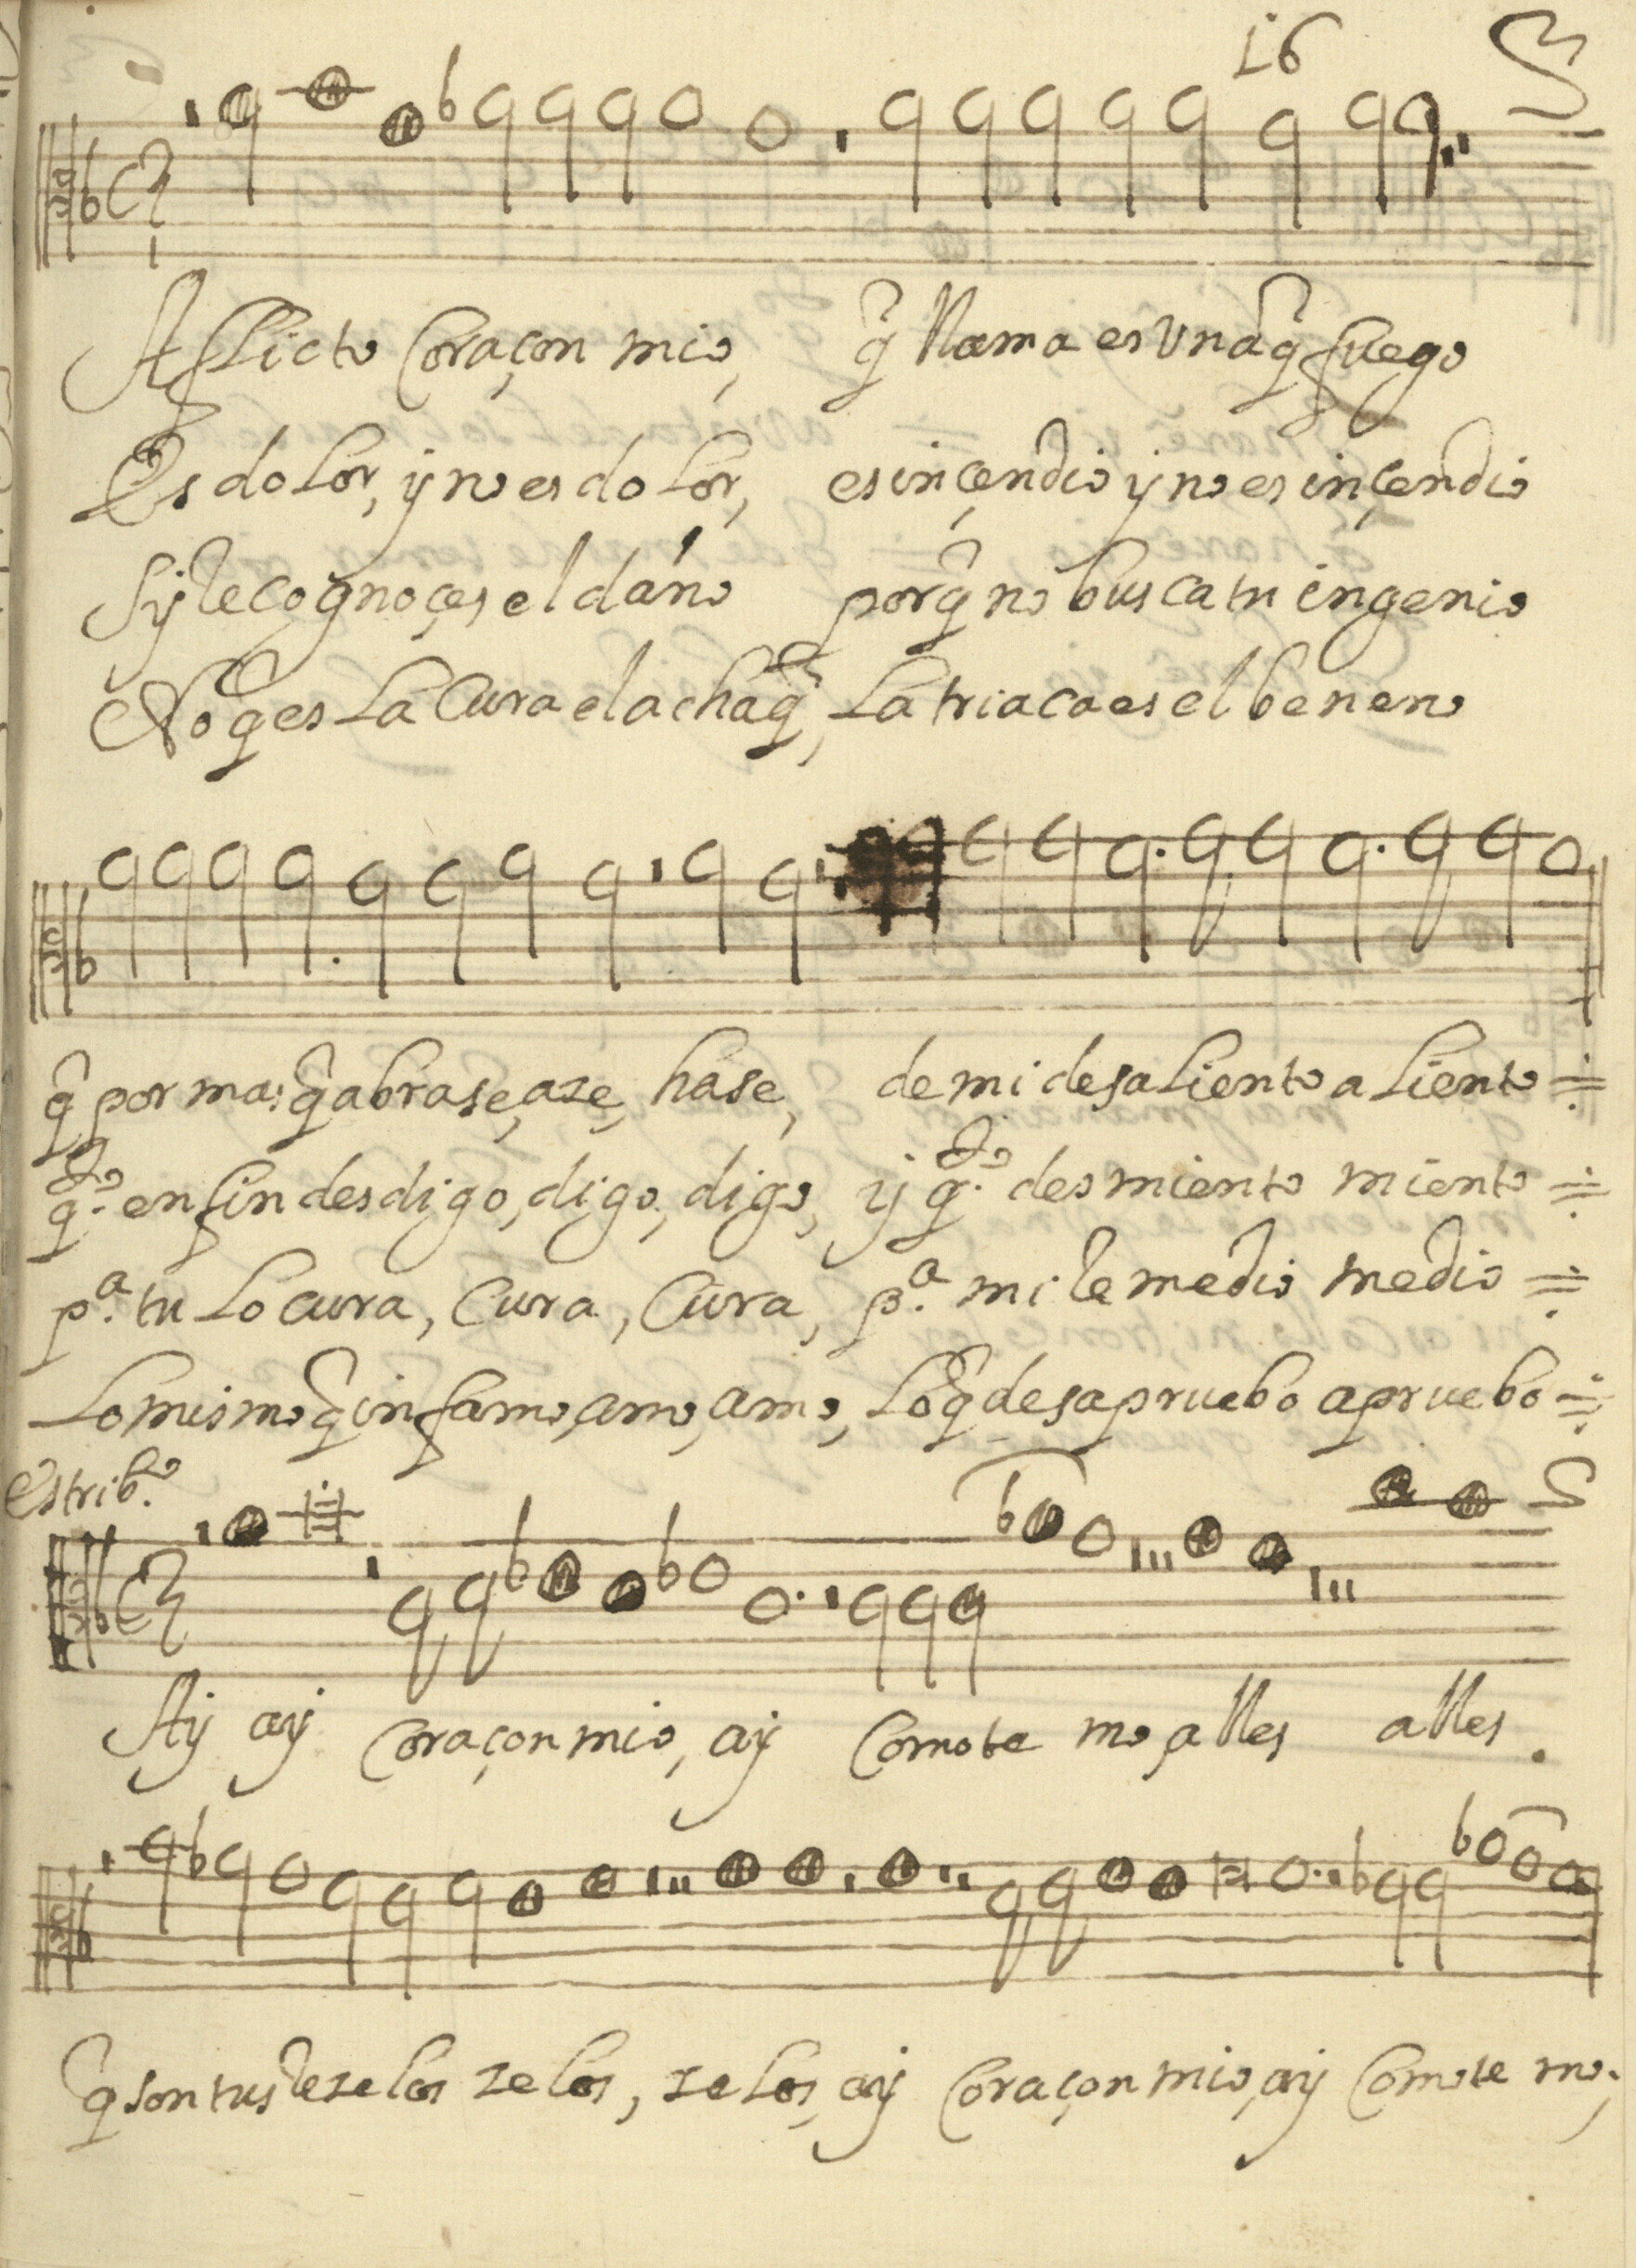 16
Aflicto Coraçon mio, q̃ llama es Vna q̃ fuego
Es dolor, y no es dolor, es inçendio y no es inçendio
Sy rrecognoçes el daño porq̃ no busca tu ingenio
No q̃ es La Cura el achaq̃, La triaca es el beneno
q̃ por mas q̃ abrase, aze, hase, de mi desaLiento aLiento
qdo. en fin desdigo, digo, digo, y qdo. desmiento miento
pa. tu Locura, Cura, Cura, pa. mi rremedio medio
Lo mismo q̃ infamo, amo, amo, Lo q̃ desapruebo apruebo
estribo.
Ay ay Coraçon mio, ay Como te mo, alles alles.
q̃ son tus rrezelos zelos, zelos, ay Coraçon mio, ay Como te mo,